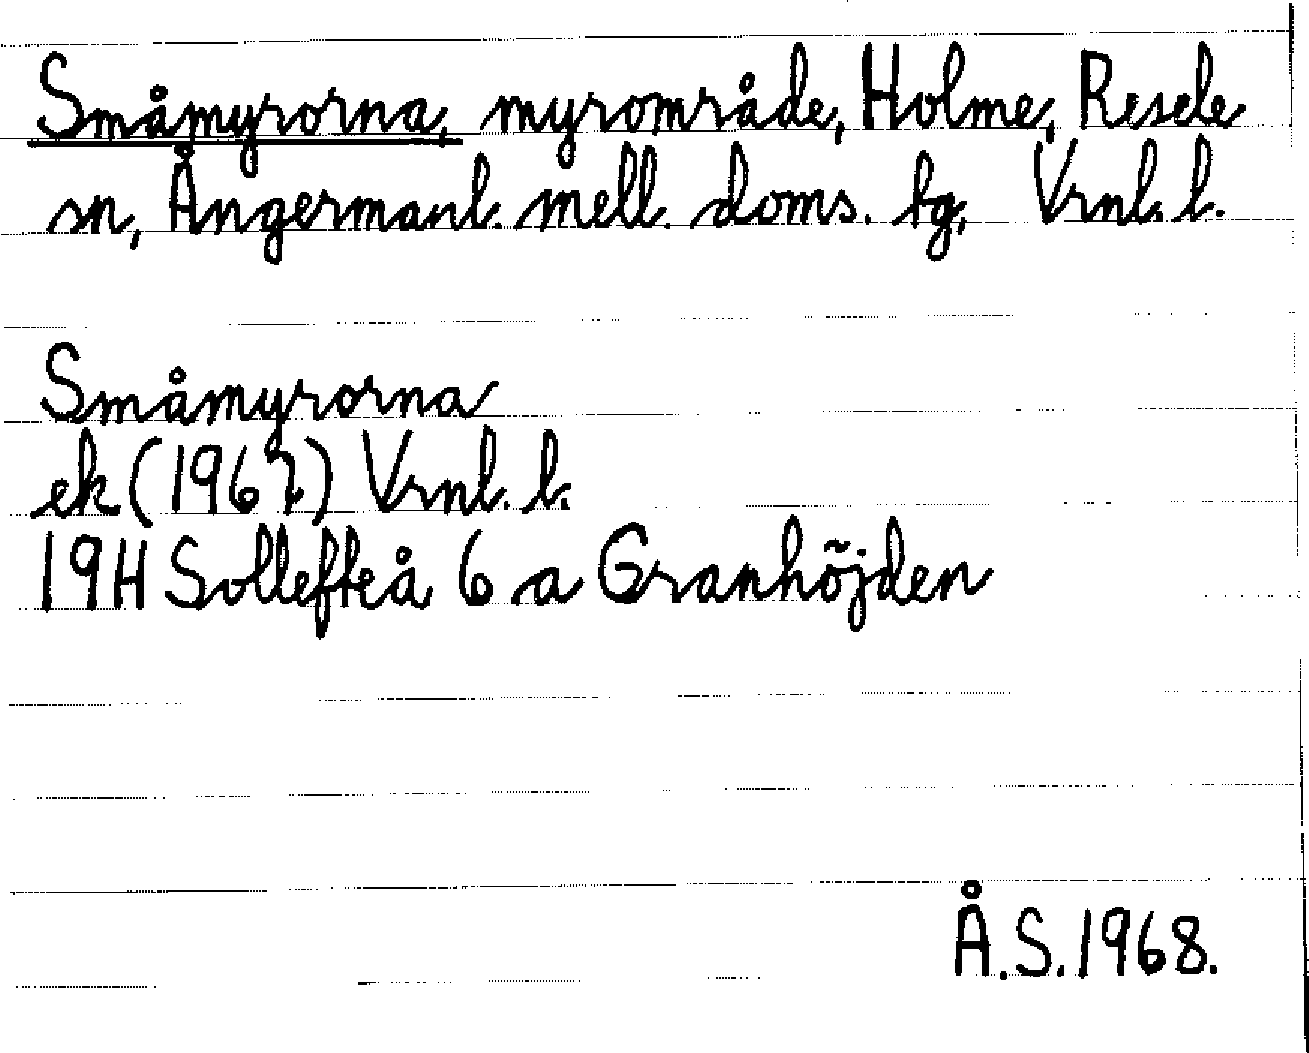 Småmyrorna, myrområde, Holme, Resele
sn, Ångermanl. mell. doms. tg, Vrnl. l.
Småmyrorna
ek (1967) Vrnl. l.
19H Sollefteå 6 a Granhöjden
Å.S. 1968.